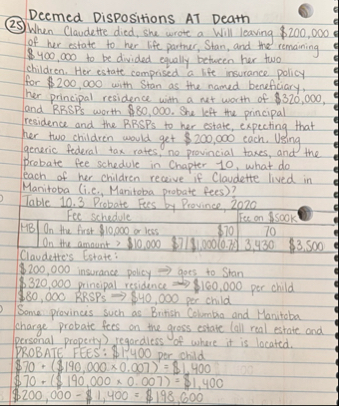 Deemed Dispositions AT Death
25 When Claudette died, she wrote a Will leaving $200,000
of her estate to her life partner, Stan, and the remaining
$400,000 to be divided equally between her two
children. Her estate comprised a life insurance policy
for $200,000 with Stan as the named beneficiary,
her principal residence with a net worth of $320,000,
and RRSPs worth $80,000. She left the principal
residence and the RRSPs to her estate, expecting that
her two children would get $200,000 each. Using
generic federal tax rates, no provincial taxes, and the
probate fee schedule in Chapter 10, what do
each of her children receive if Claudette lived in
Manitoba (i.e., Manitoba probate fees)?
Table 10.3 Probate Fees by Province, 2020
Fee Schedule Fee on $500K
MB On the first $10,000 or less $70 70
On the amount > $10,000 $7/$1,000(0.70) 3,430 $3,500
Claudette's Estate:
$200,000 insurance policy ⇒ goes to Stan
$320,000 principal residence ⇒ $160,000 per child
$80,000 RRSPs ⇒ $40,000 per child
Some provinces such as British Columbia and Manitoba
charge probate fees on the gross estate (all real estate and
personal property) regardless of where it is located.
PROBATE FEES: $1,400 per child
$70 + ($190,000 x 0.007) = $1,400
$70 + ($190,000 x 0.007) = $1,400
$200,000 - $1,400 = $198,600